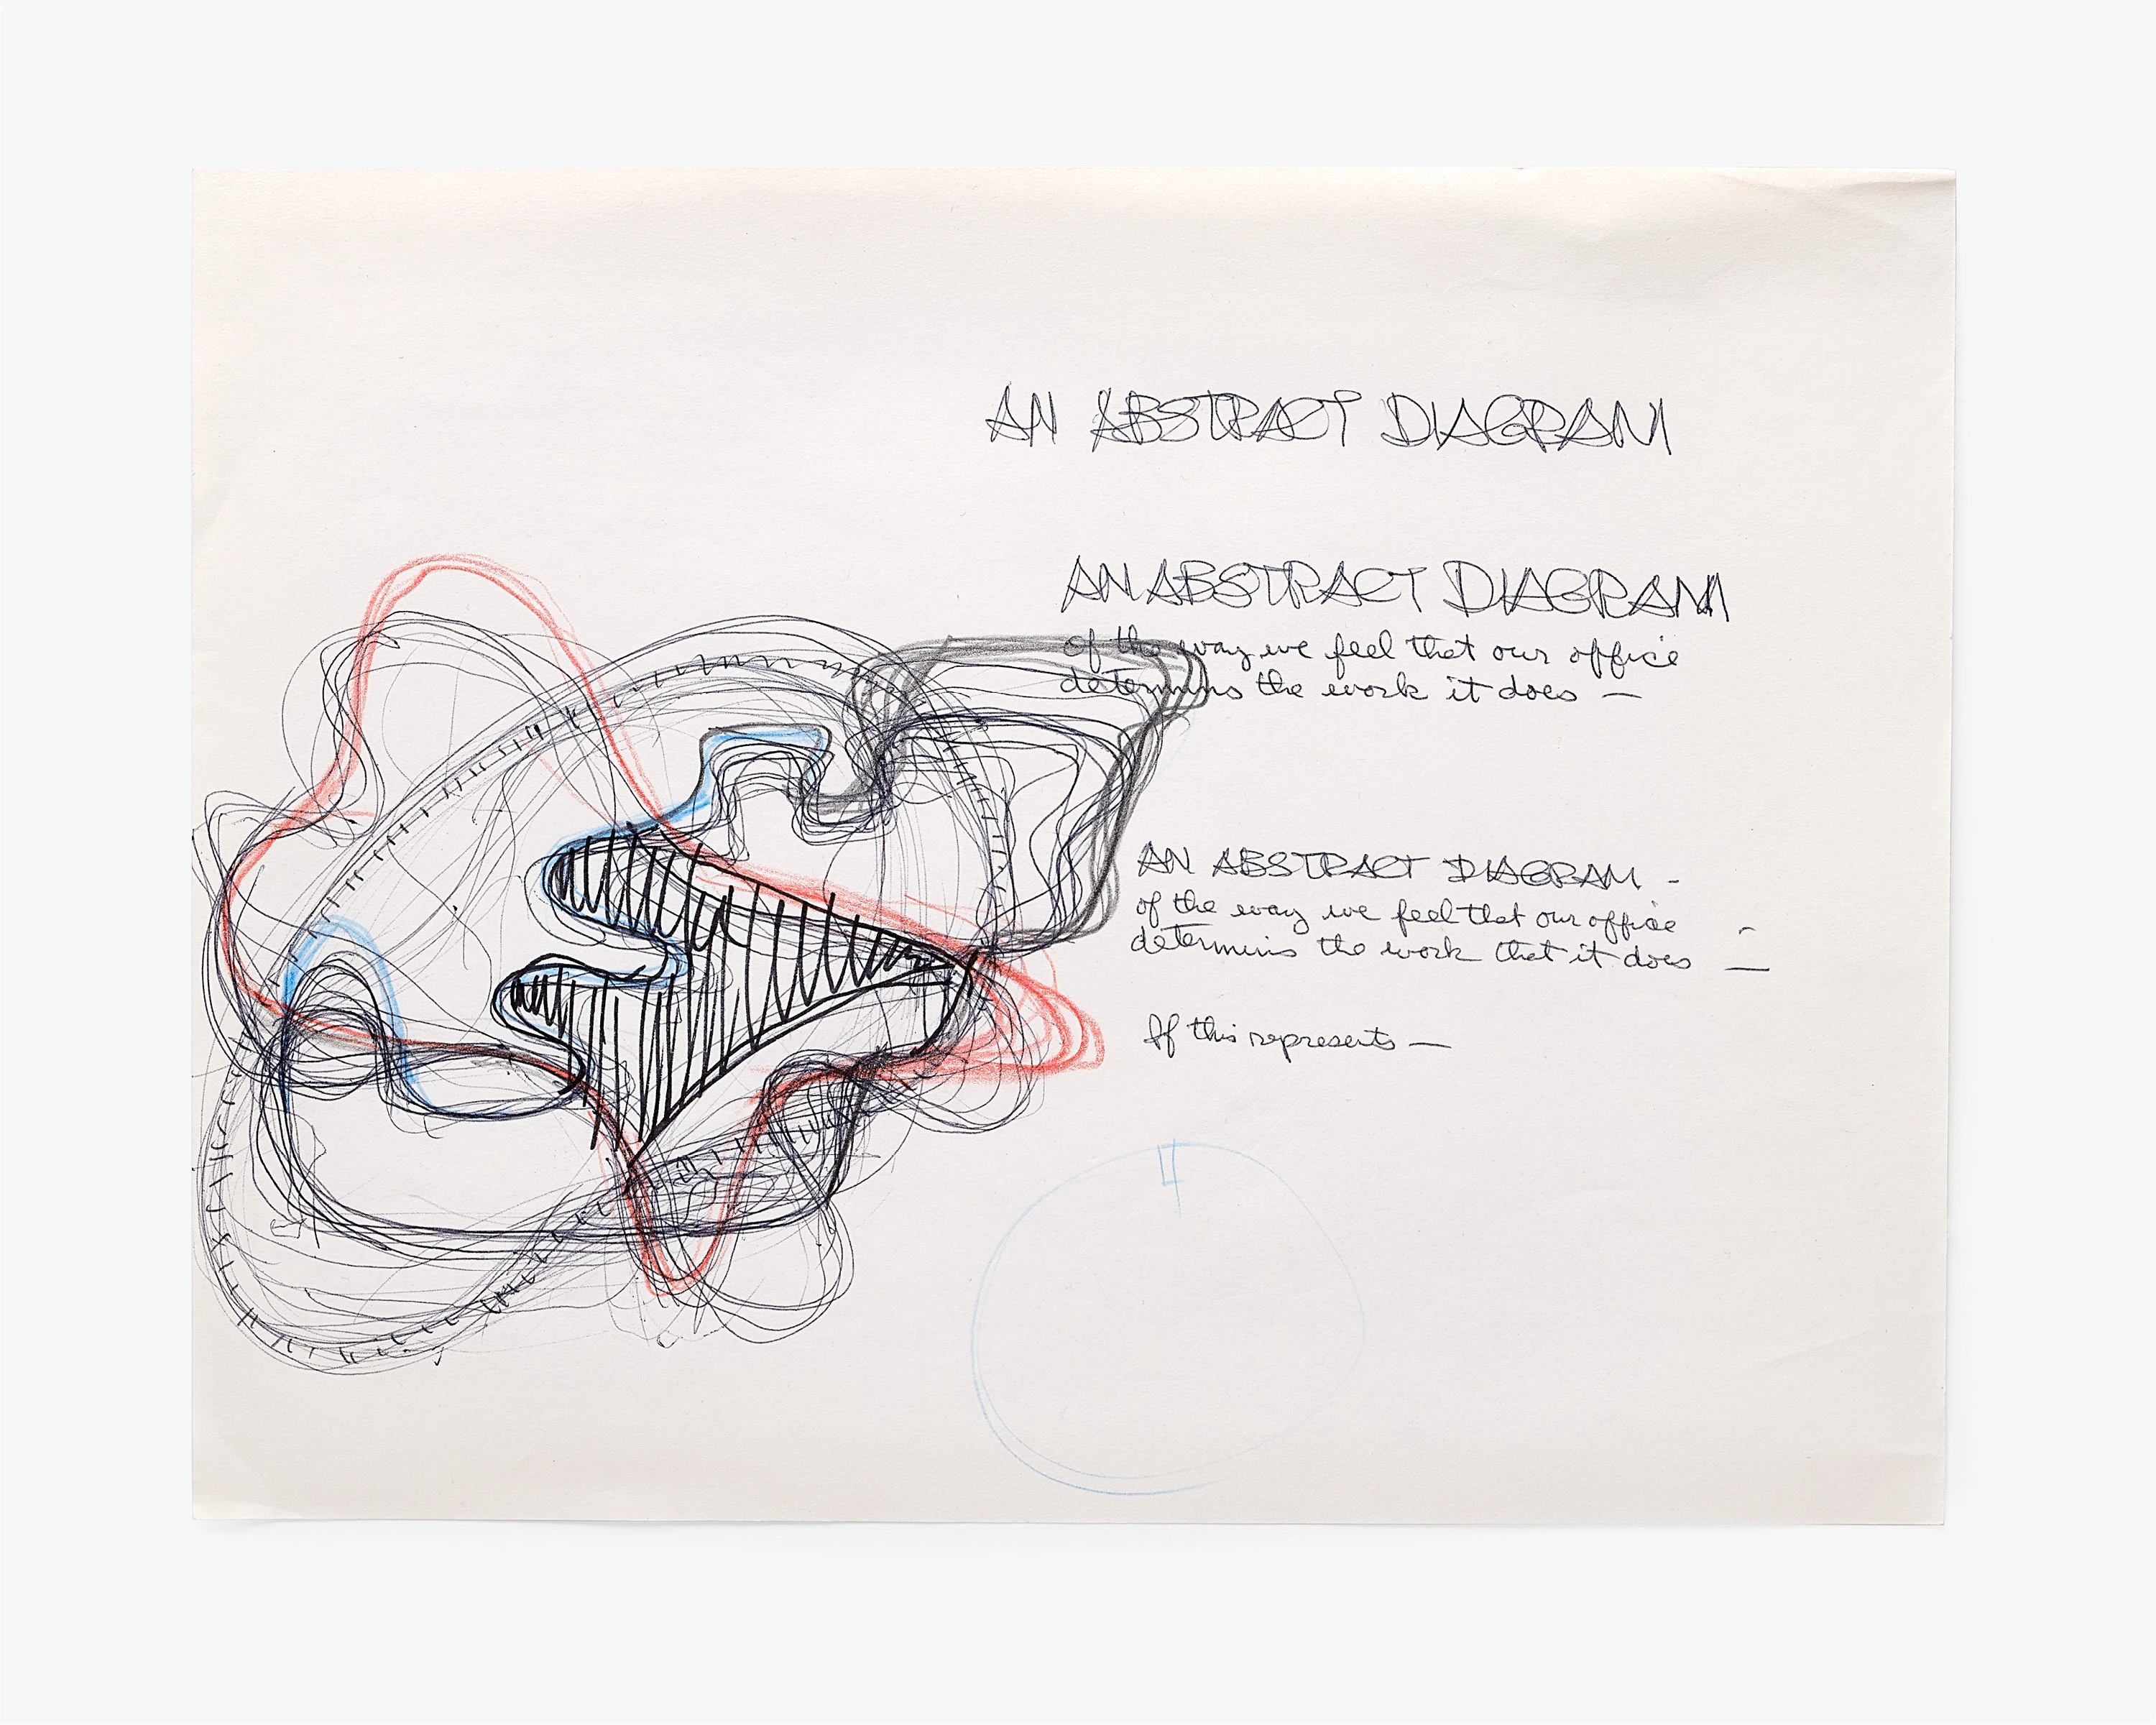 AN ABSTRACT DIAGRAM
AN ABSTRACT DIAGRAM
of the way we feel that our office
determins the work it does —
AN ABSTRACT DIAGRAM -
of the way we feel that our office
determins the work that it does —
If this represents —